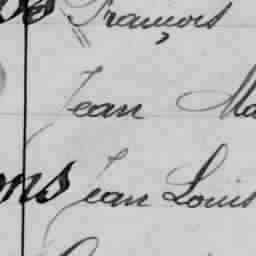 François
Jean Ma
ons Jean Louis